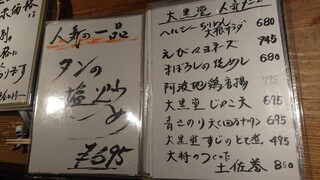 人気の一品
タンの
塩炒め
¥695
大黒堂 人気メニュー
ヘルシーちりめん大根サラダ 680
えびマヨネーズ 745
まぼろしの塩めし 280
阿波地鶏唐揚 795
大黒堂じゃこ天 695
青さのり天(四万十川) 695
大黒堂すじのどて煮 495
大将のつくった土佐巻 850